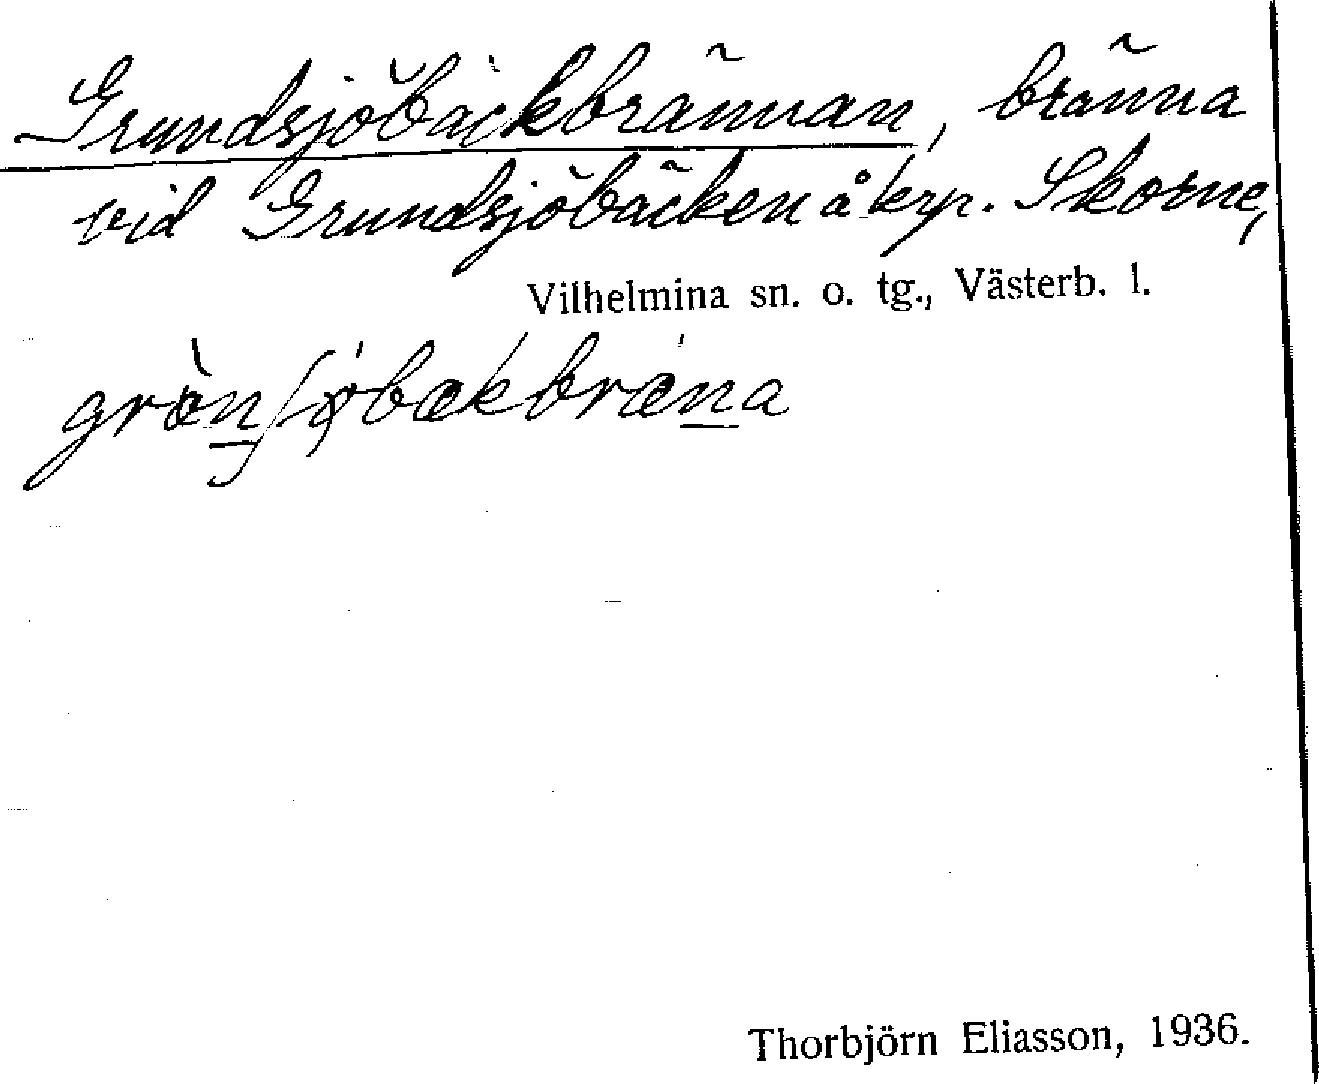 Grundsjöbäckbrännan, bränna
vid Grundsjöbäcken å krp. Skorne,
Vilhelmina sn. o. tg., Västerb. l.
Thorbjörn Eliasson, 1936.